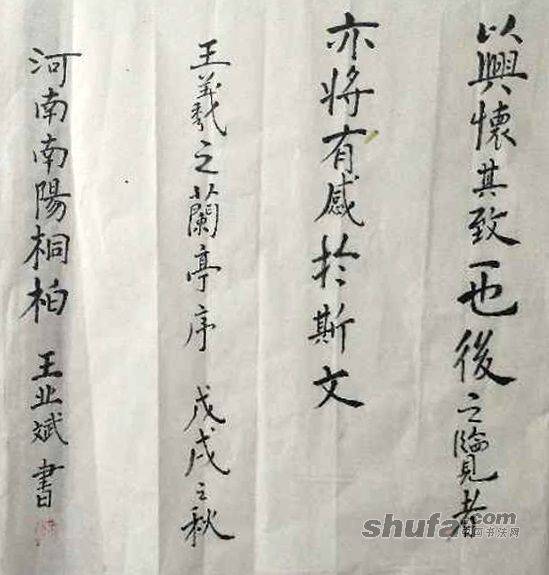 以興懷其致一也後之覽者
亦將有感於斯文
王羲之蘭亭序 戊戌之秋
河南南陽桐柏 王业斌 書
shufa.com
中国书法网